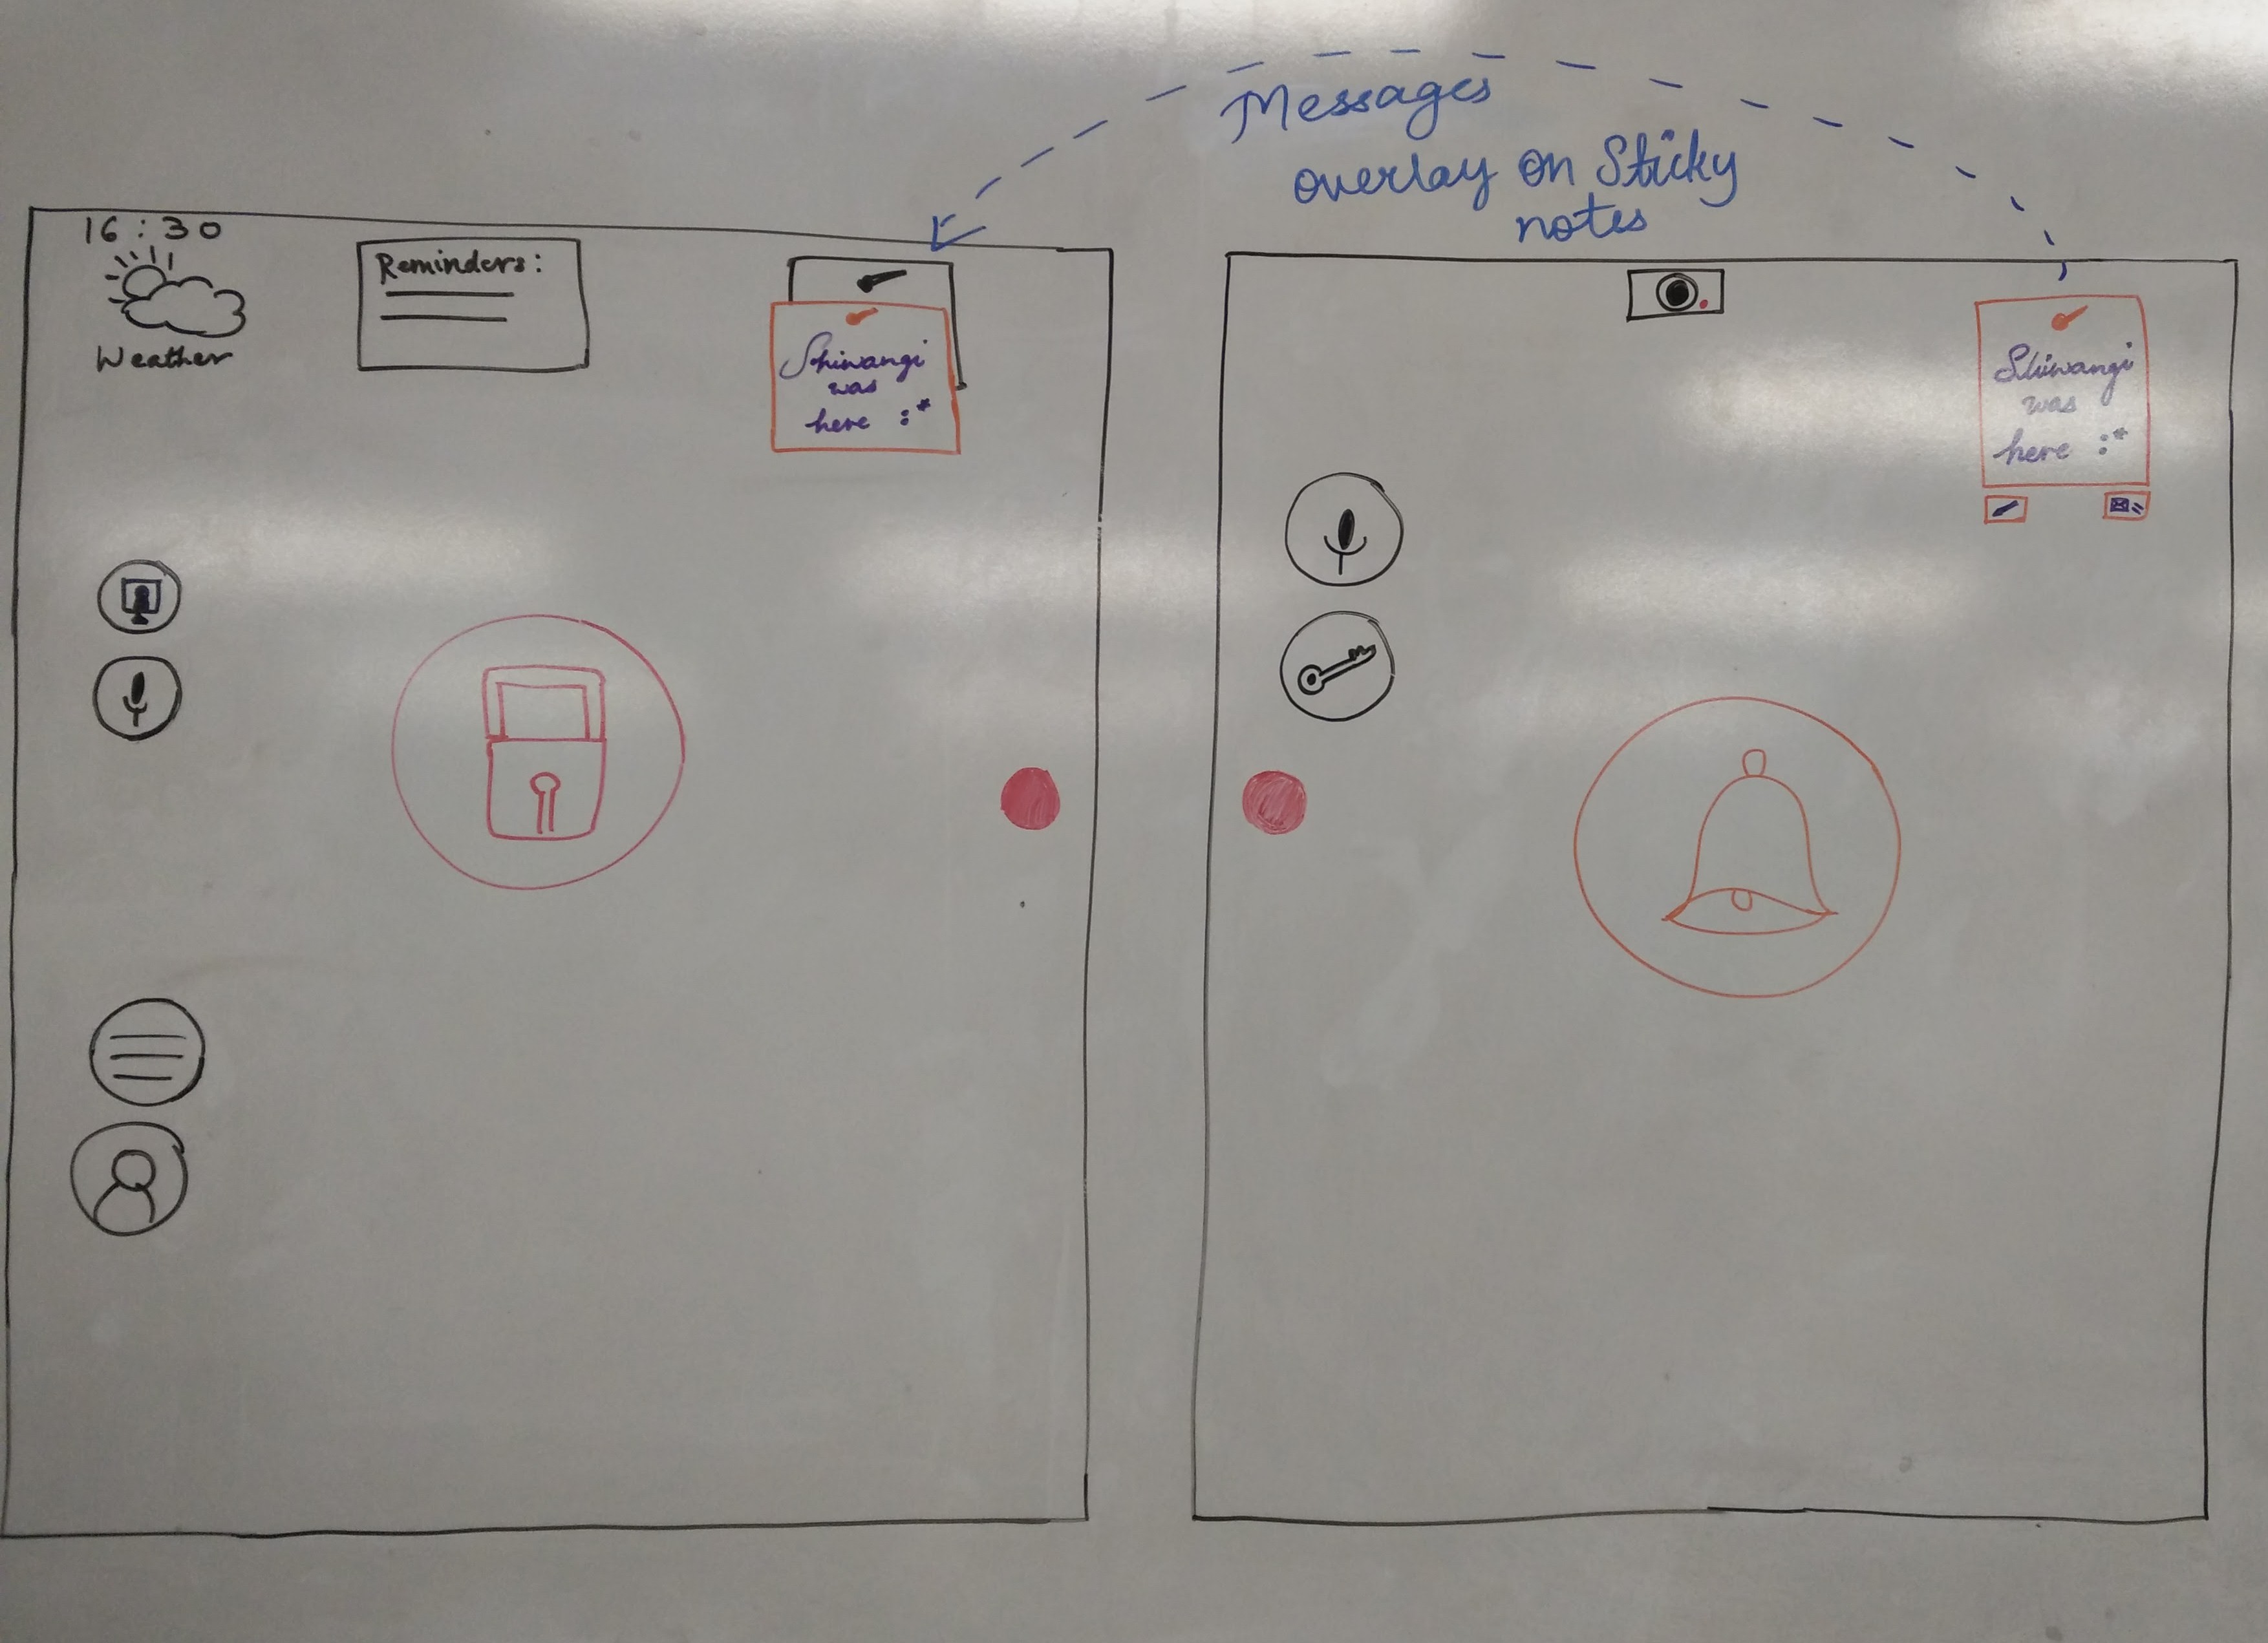 Messages
overlay on Sticky
notes
16:30
Weather
Reminders:
Shiwangi
was
here :*
Shiwangi
was
here :*